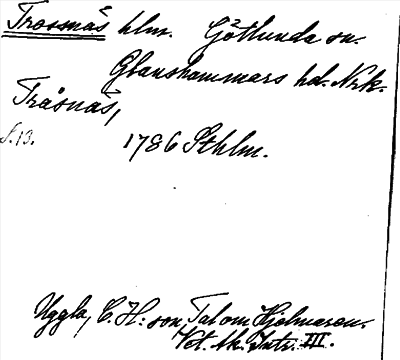 Trosnäs hlm. Götlunda sn.
Glanshammars hd. Nrk.
Tråsnäs,
S. 13.
1786 Sthlm.
Uggla, C. H:son, Tal om Hjelmaren.
Vet. Ak. Intr. III.